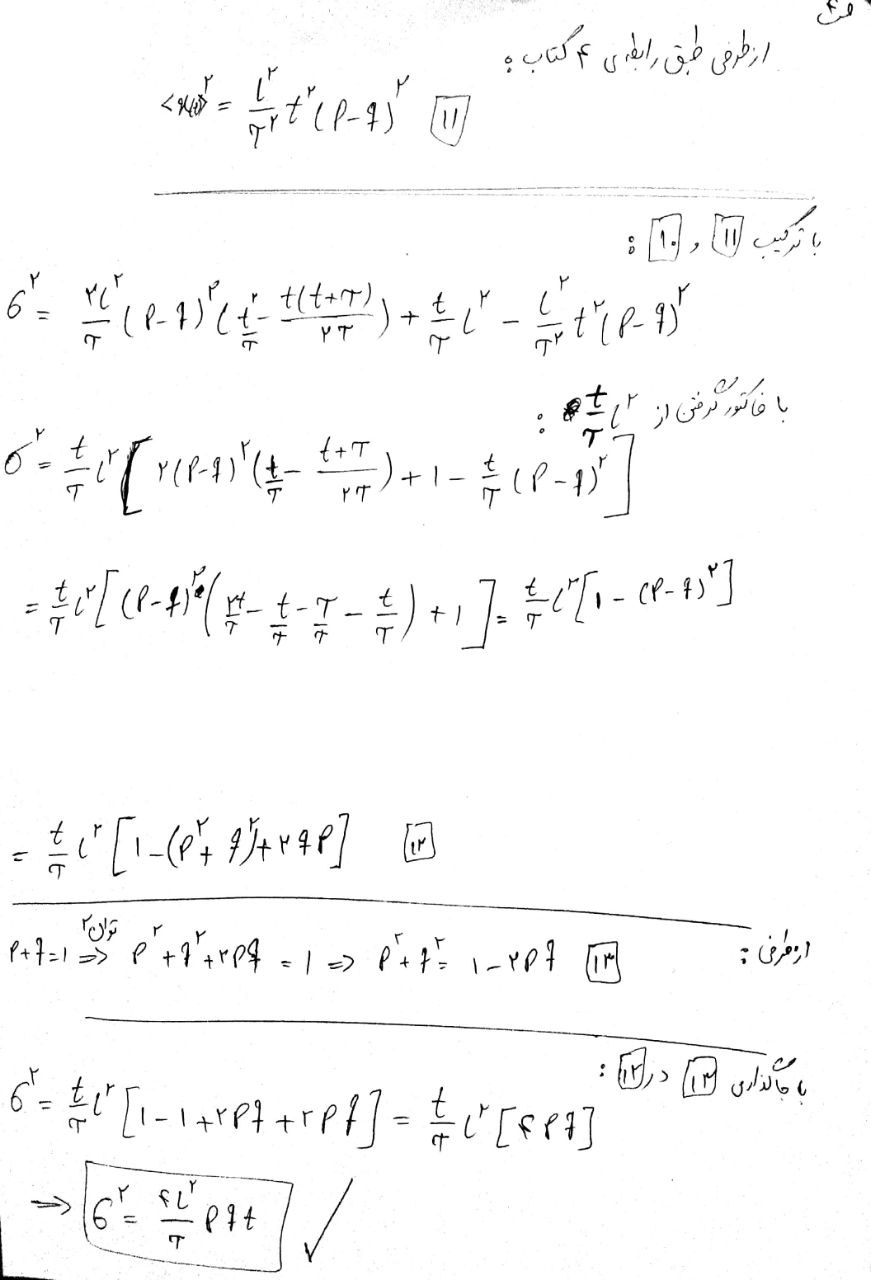 ص۴
از طرفی طبق رابطه‌ی ۴ کتاب :
<x(t)>^۲ = l^۲/τ^۲ t^۲ (P-q)^۲ [۱۱]
با ترکیب [۱۱] و [۱۰] :
σ^۲ = ۲l^۲/τ (P-q)^۲ (t^۲/τ - t(t+τ)/۲τ) + t/τ l^۲ - l^۲/τ^۲ t^۲ (P-q)^۲
با فاکتور گرفتن از t/τ l^۲ :
σ^۲ = t/τ l^۲ [۲(P-q)^۲ (t/τ - t+τ/۲τ) + ۱ - t/τ (P-q)^۲]
= t/τ l^۲ [(P-q)^۲ (۲t/τ - t/τ - τ/τ - t/τ) + ۱] = t/τ l^۲ [۱ - (P-q)^۲]
= t/τ l^۲ [۱-(P^۲ + q^۲) + ۲qP] [۱۲]
از طرفی :
P+q=۱ توان۲ ⇒ P^۲ + q^۲ + ۲Pq = ۱ ⇒ P^۲ + q^۲ = ۱ - ۲Pq [۱۳]
با جاگذاری [۱۳] در [۱۲] :
σ^۲ = t/τ l^۲ [۱-۱+۲Pq+۲Pq] = t/τ l^۲ [۴Pq]
⇒ σ^۲ = ۴l^۲/τ Pqt ✓